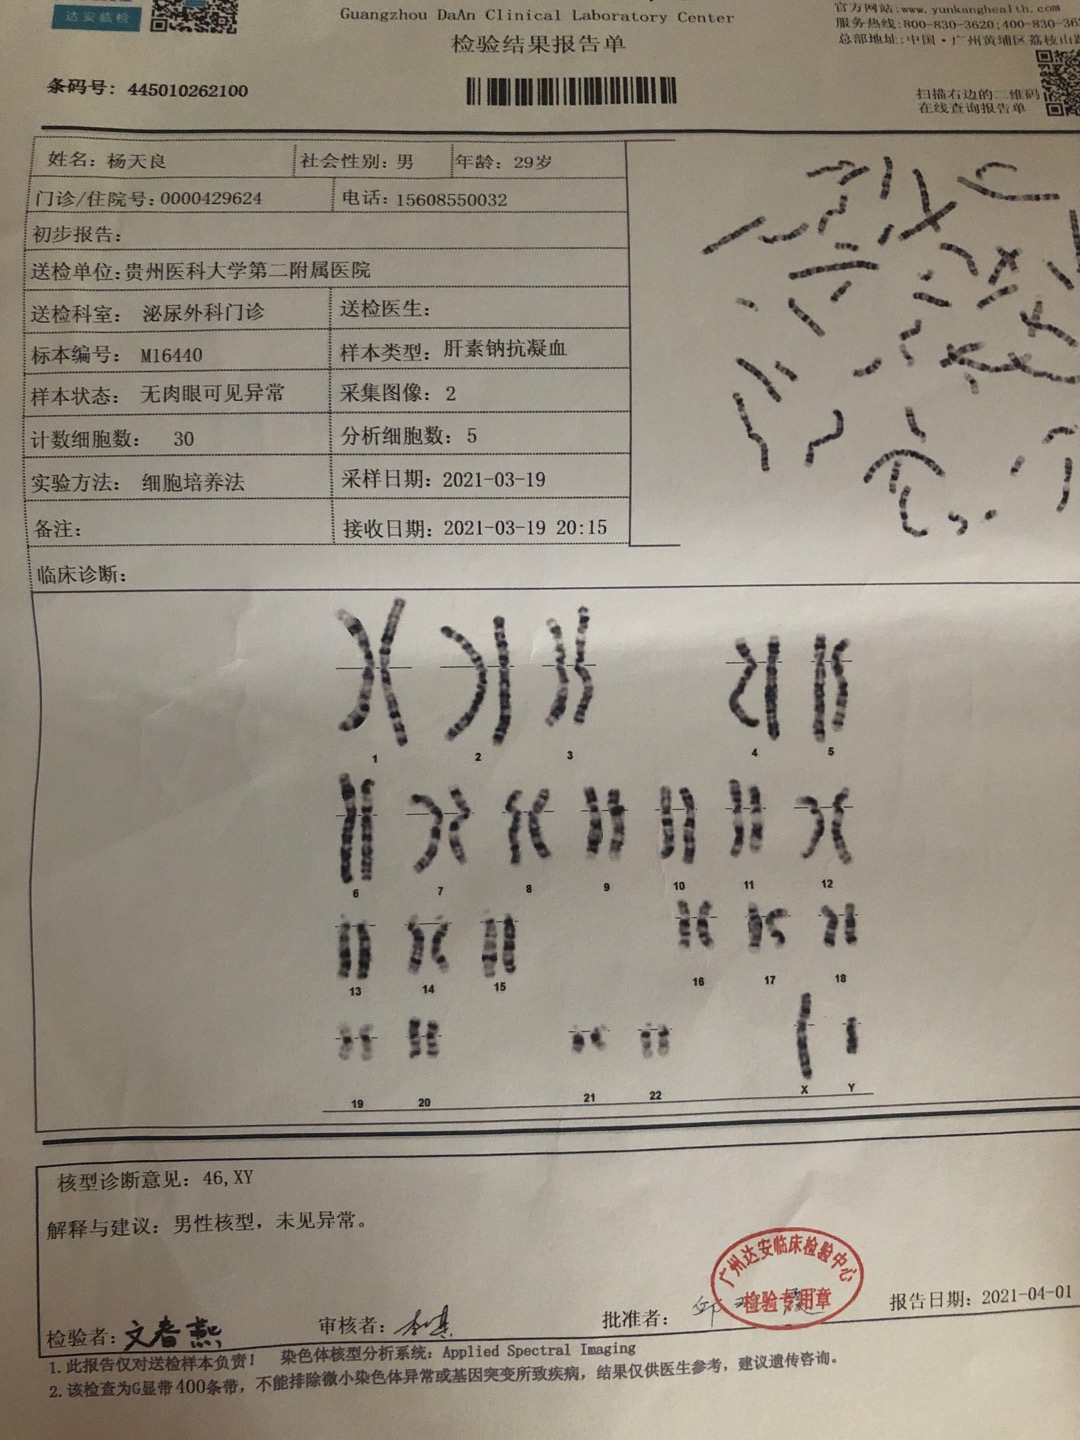 达安临检
Guangzhou DaAn Clinical Laboratory Center
检验结果报告单
官方网站:www.yunkanghealth.com
服务热线:800-830-3620;400-830-36
总部地址:中国·广州黄埔区荔枝山路
条码号: 445010262100
扫描右边的二维码
在线查询报告单
姓名: 杨天良 社会性别: 男 年龄: 29岁
门诊/住院号: 0000429624 电话: 15608550032
初步报告:
送检单位: 贵州医科大学第二附属医院
送检科室: 泌尿外科门诊 送检医生:
标本编号: M16440 样本类型: 肝素钠抗凝血
样本状态: 无肉眼可见异常 采集图像: 2
计数细胞数: 30 分析细胞数: 5
实验方法: 细胞培养法 采样日期: 2021-03-19
备注: 接收日期: 2021-03-19 20:15
临床诊断:
1 2 3 4 5
6 7 8 9 10 11 12
13 14 15 16 17 18
19 20 21 22 X Y
核型诊断意见: 46,XY
解释与建议: 男性核型, 未见异常。
广州达安临床检验中心
检验专用章
检验者: 文春燕 审核者: 批准者: 报告日期: 2021-04-01
1.此报告仅对送检样本负责! 染色体核型分析系统: Applied Spectral Imaging
2.该检查为G显带400条带, 不能排除微小染色体异常或基因突变所致疾病, 结果仅供医生参考, 建议遗传咨询。